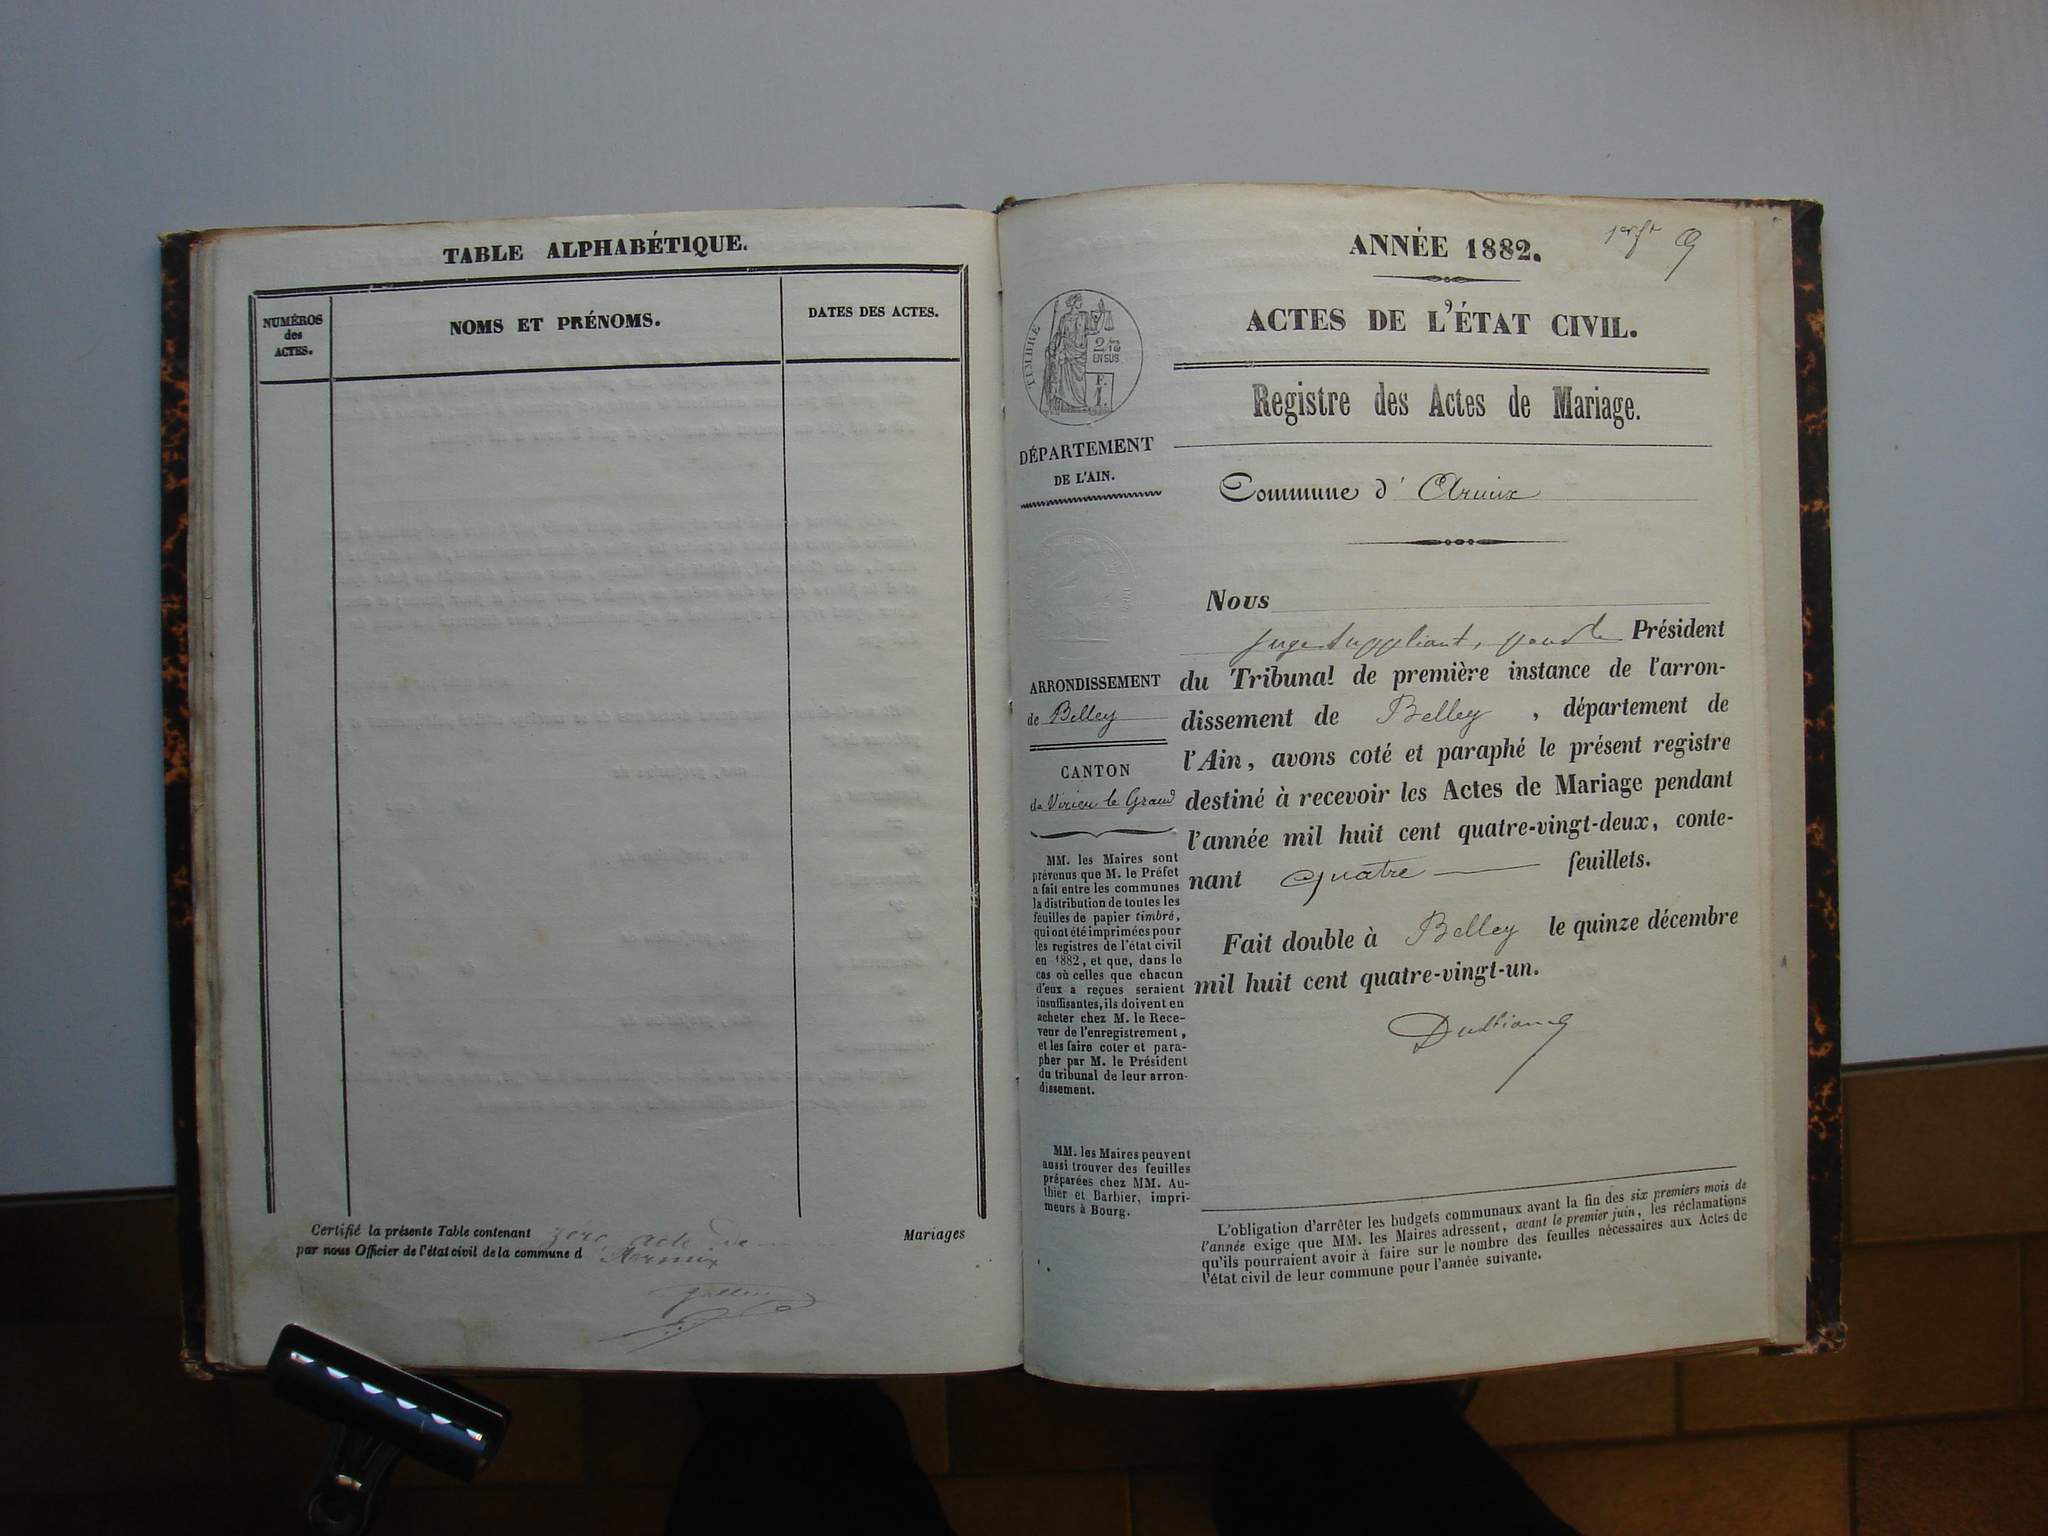 TABLE ALPHABÉTIQUE.
NUMÉROS
des
ACTES.
NOMS ET PRÉNOMS.
DATES DES ACTES.
Certifié la présente Table contenant zéro acte de Mariages
par nous Officier de l'état civil de la commune d Armix
ANNÉE 1882.
ACTES DE L'ÉTAT CIVIL.
Registre des Actes de Mariage.
TIMBRE
2/10
EN SUS
F.
1.
DÉPARTEMENT
DE L'AIN.
Commune d' Armix
ARRONDISSEMENT
de Belley
CANTON
de Virieu le Grand
MM. les Maires sont
prévenus que M. le Préfet
a fait entre les communes
la distribution de toutes les
feuilles de papier timbré,
qui ont été imprimées pour
les registres de l'état civil
en 1882, et que, dans le
cas où celles que chacun
d'eux a reçues seraient
insuffisantes, ils doivent en
acheter chez M. le Rece-
veur de l'enregistrement,
et les faire coter et para-
pher par M. le Président
du tribunal de leur arron-
dissement.
MM. les Maires peuvent
aussi trouver des feuilles
préparées chez MM. Au-
thier et Barbier, impri-
meurs à Bourg.
Nous
juge suppléant, pour le Président
du Tribunal de première instance de l'arron-
dissement de Belley, département de
l'Ain, avons coté et paraphé le présent registre
destiné à recevoir les Actes de Mariage pendant
l'année mil huit cent quatre-vingt-deux, conte-
nant quatre feuillets.
Fait double à Belley le quinze décembre
mil huit cent quatre-vingt-un.
L'obligation d'arrêter les budgets communaux avant la fin des six premiers mois de
l'année exige que MM. les Maires adressent, avant le premier juin, les réclamations
qu'ils pourraient avoir à faire sur le nombre des feuilles nécessaires aux Actes de
l'état civil de leur commune pour l'année suivante.